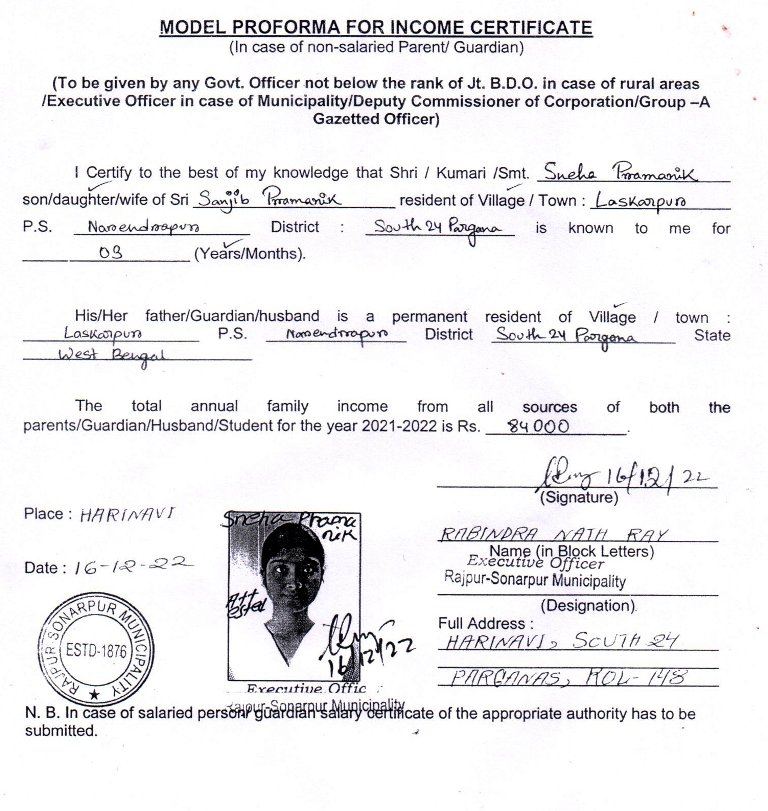 MODEL PROFORMA FOR INCOME CERTIFICATE
(In case of non-salaried Parent/ Guardian)
(To be given by any Govt. Officer not below the rank of Jt. B.D.O. in case of rural areas
/Executive Officer in case of Municipality/Deputy Commissioner of Corporation/Group –A
Gazetted Officer)
I Certify to the best of my knowledge that Shri / Kumari /Smt. Sneha Pramanik
son/daughter/wife of Sri Sanjib Pramanik resident of Village / Town : Laskarpur
P.S. Narendrapur District : South 24 Pargana is known to me for
03 (Years/Months).
His/Her father/Guardian/husband is a permanent resident of Village / town :
Laskarpur P.S. Narendrapur District South 24 Pargana State
West Bengal
The total annual family income from all sources of both the
parents/Guardian/Husband/Student for the year 2021-2022 is Rs. 84000.
16/12/22
(Signature)
Place : HARINAVI
Sneha Prama
nik
RABINDRA NATH RAY
Name (in Block Letters)
Executive Officer
Date : 16-12-22
Rajpur-Sonarpur Municipality
(Designation)
Att
ested
Full Address :
RAJPUR SONARPUR MUNICIPALITY
ESTD-1876
HARINAVI, SOUTH 24
16/12/22
PARGANAS, KOL-148
Executive Offic
Rajpur-Sonarpur Municipality
N. B. In case of salaried person/ guardian salary certificate of the appropriate authority has to be
submitted.